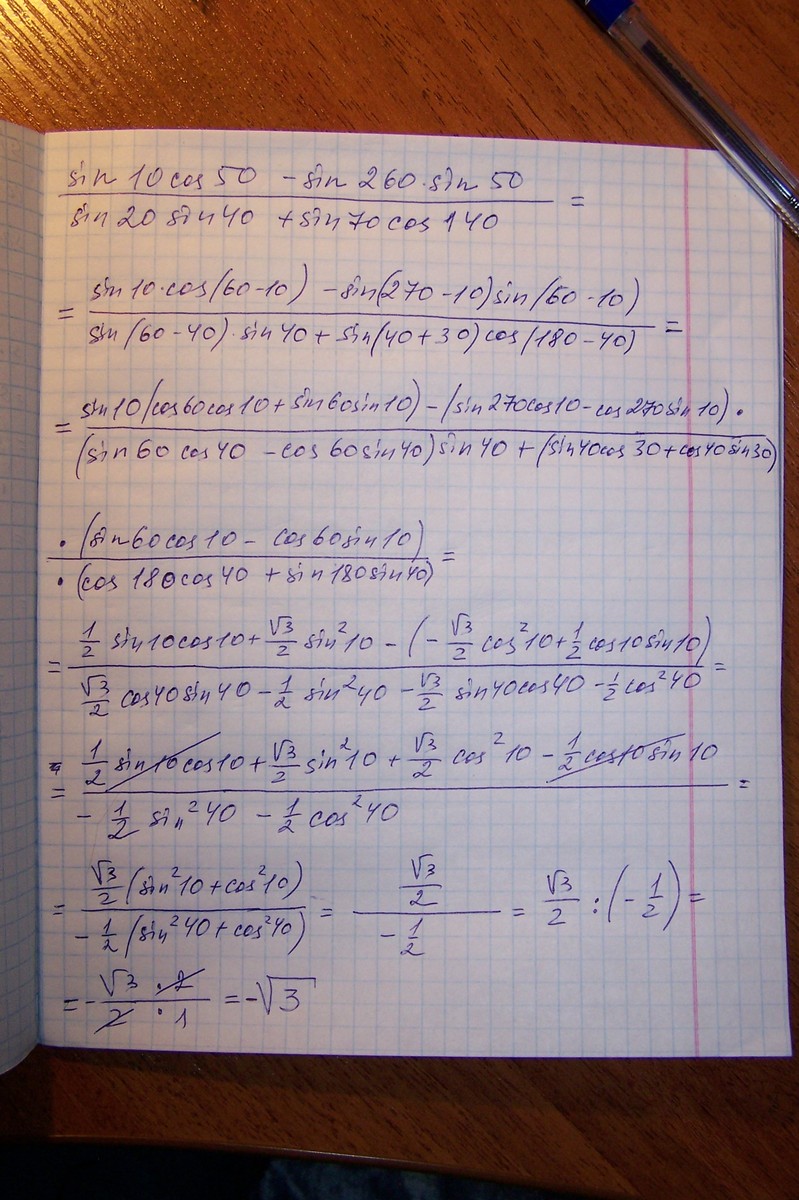 sin 10 cos 50 - sin 260 · sin 50
sin 20 sin 40 + sin 70 cos 140
=
= sin 10 · cos(60-10) - sin(270-10) sin(60-10)
sin(60-40) · sin 40 + sin(40+30) cos(180-40)
=
= sin 10 (cos 60 cos 10 + sin 60 sin 10) - (sin 270 cos 10 - cos 270 sin 10) ·
(sin 60 cos 40 - cos 60 sin 40) sin 40 + (sin 40 cos 30 + cos 40 sin 30)
· (sin 60 cos 10 - cos 60 sin 10)
· (cos 180 cos 40 + sin 180 sin 40)
=
= 1/2 sin 10 cos 10 + √3/2 sin² 10 - (- √3/2 cos² 10 + 1/2 cos 10 sin 10)
√3/2 cos 40 sin 40 - 1/2 sin² 40 - √3/2 sin 40 cos 40 - 1/2 cos² 40
=
= 1/2 sin 10 cos 10 + √3/2 sin² 10 + √3/2 cos² 10 - 1/2 cos 10 sin 10
- 1/2 sin² 40 - 1/2 cos² 40
=
= √3/2 (sin² 10 + cos² 10)
- 1/2 (sin² 40 + cos² 40)
= √3/2
- 1/2
= √3/2 : (- 1/2) =
= - √3 · 2
2 · 1
= -√3